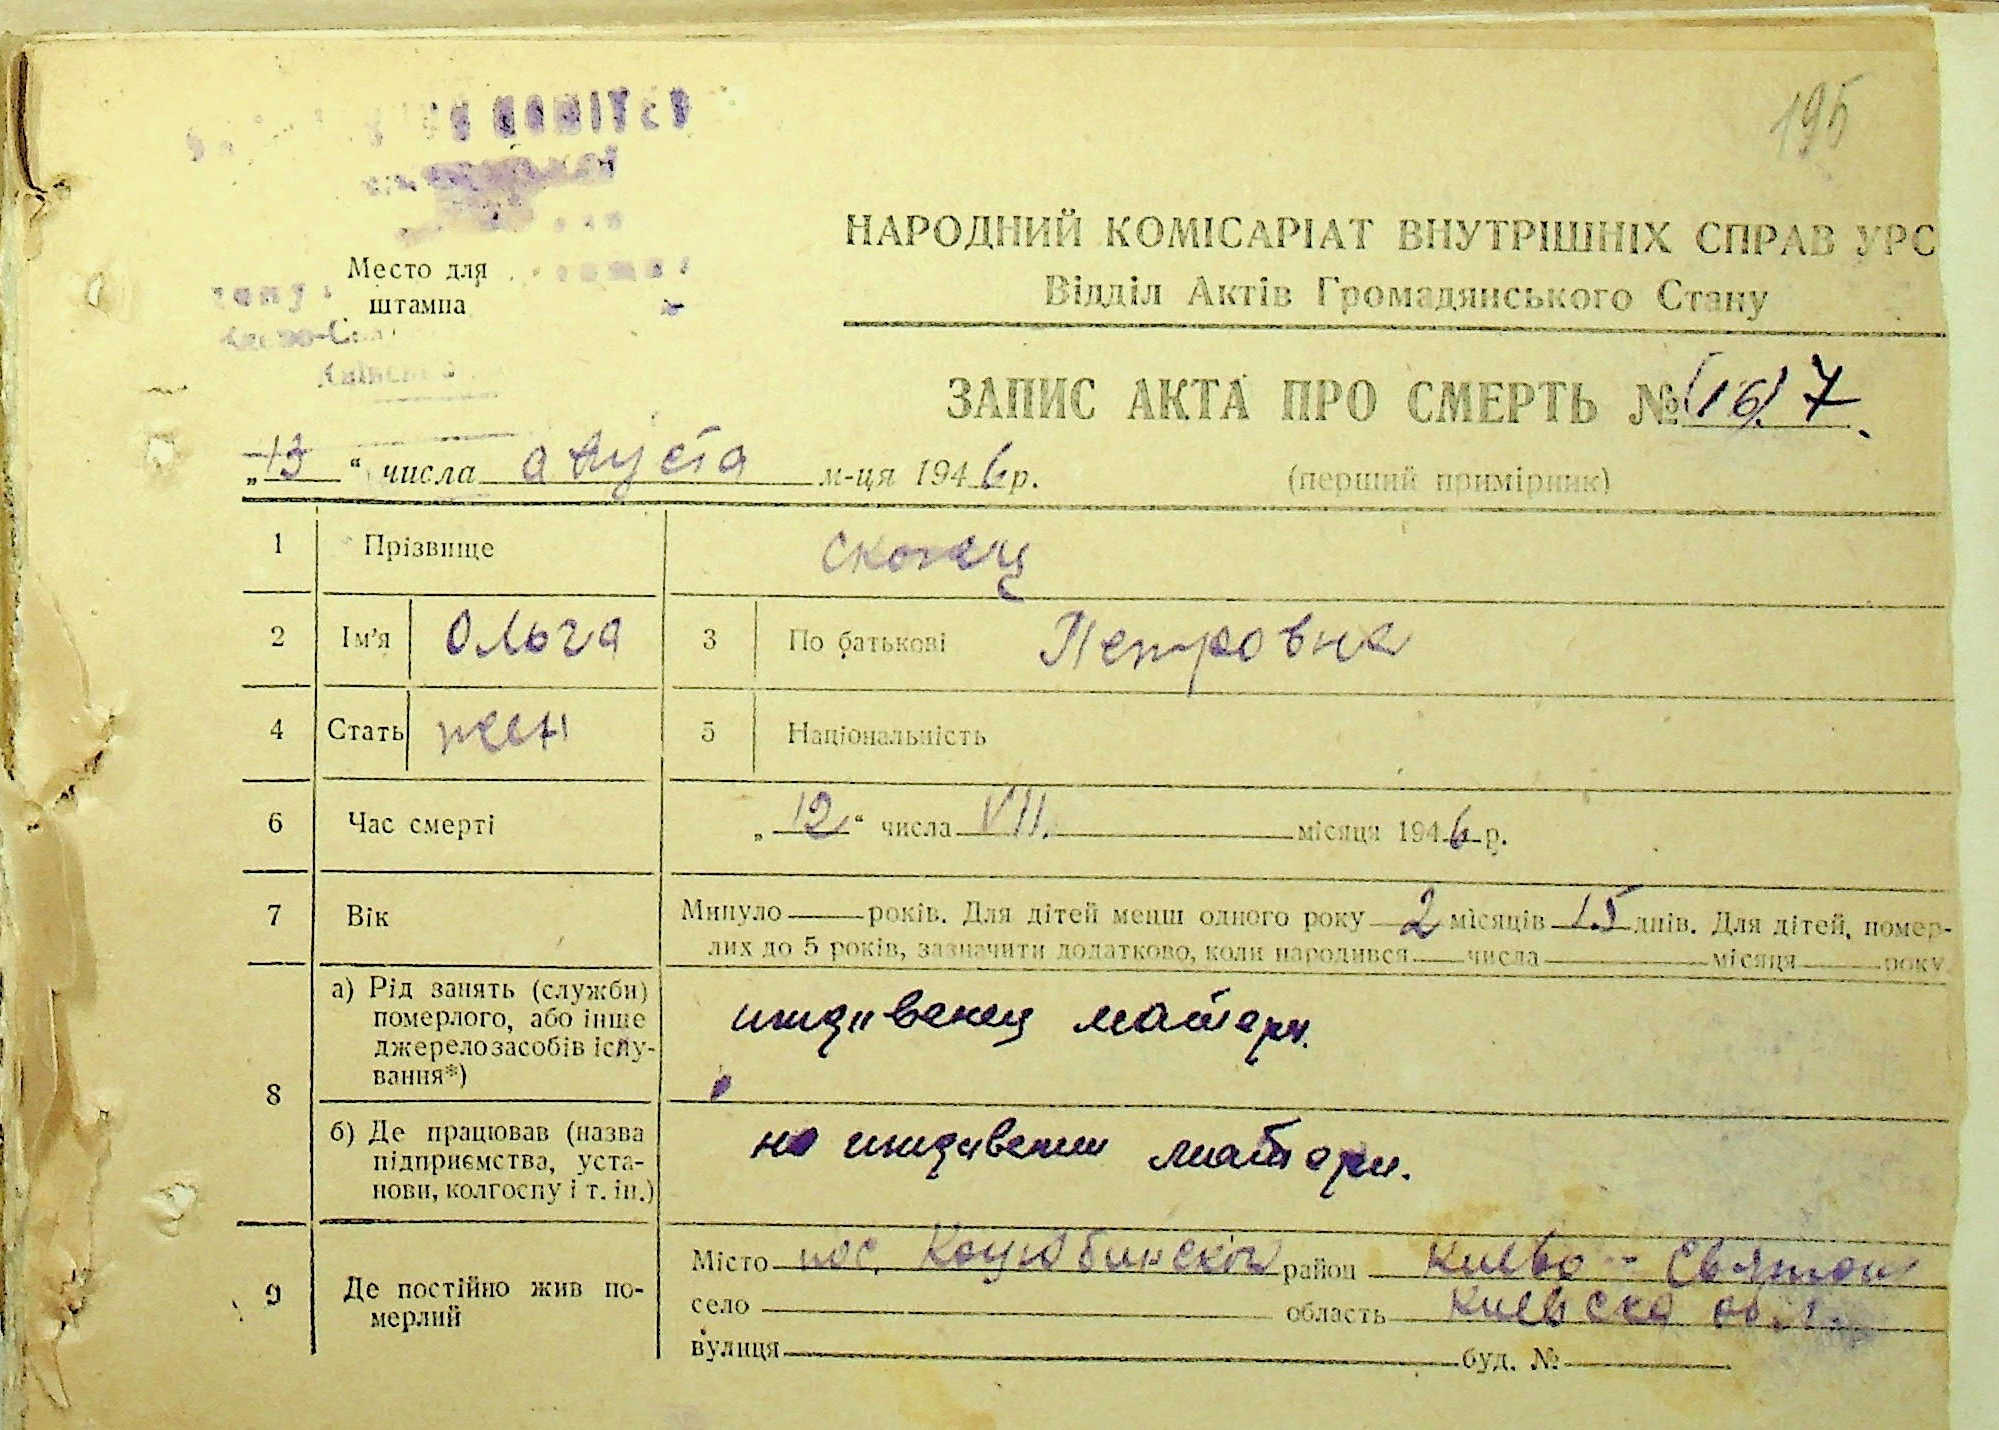 195
КОМІТЕТ
НАРОДНИЙ КОМІСАРІАТ ВНУТРІШНІХ СПРАВ УРС
Відділ Актів Громадянського Стану
Место для
штампа
ЗАПИС АКТА ПРО СМЕРТЬ № (16) 7
„13“ числа августа м-ця 1946 р.
(перший примірник)
1 Прізвище
2 Ім'я Ольга 3 По батькові Петровна
4 Стать жен 5 Національність
6 Час смерті „12“ числа VII. місяця 1946 р.
7 Вік Минуло років. Для дітей менш одного року 2 місяців 15 днів. Для дітей, помер-
лих до 5 років, зазначити додатково, коли народився числа місяця року
8 а) Рід занять (служби)
померлого, або інше
джерело засобів існу-
вання*)
иждивенец матери.
б) Де працював (назва
підприємства, уста-
нови, колгоспу і т. ін.)
на иждивении матери.
9 Де постійно жив по-
мерлий
Місто пос. Коцюбинский район Киево-Святош
село область Киевска обл.
вулиця буд. №